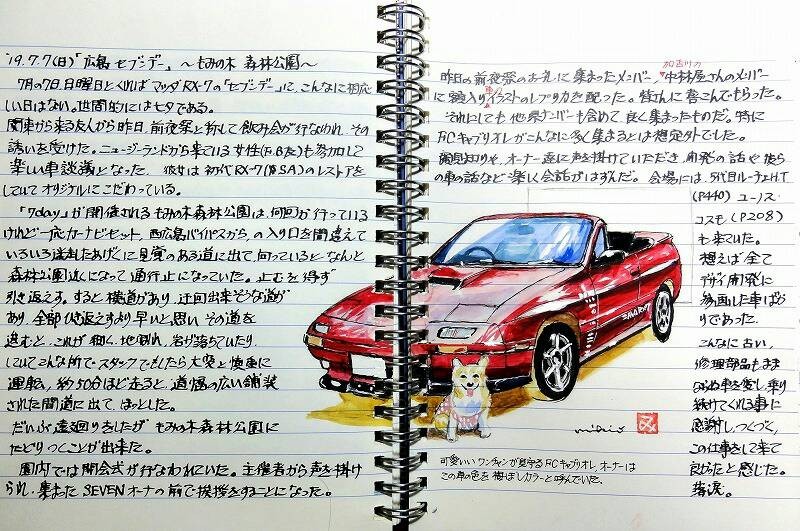 '19.7.7(日)「広島 セブンデー」 〜もみの木 森林公園〜
7月の7日、日曜日とくればマツダRX-7の「セブンデー」に、こんなに相応
しい日はない。世間的には七夕である。
関東から来る友人から昨日、前夜祭と称して飲み会が行なわれ、その
誘いを受けた。ニュージーランドから来ている女性(F.B友)も参加して
楽しい車談議となった。彼女は初代RX-7(SA)のレストアを
していてオリジナルにこだわっている。
「7day」が開催されるもみの木森林公園は、何回か行っている
けれど一応カーナビセット、西広島バイパスから、の入り口を間違えて
いろいろ迷走したあげくに見覚えのある道に出て、向っているとなんと
森林公園近くになって通行止になっていた。止むを得ず
引き返えす。すると横道があり、迂回出来そうな道が
あり、全部引き返えすより早いと思い その道を
進むと、これが細く、地倒れ、岩が落ちていたり
していてこんな所でスタックでもしたら大変と慎重に
運転、約50分ほど走ると、道幅の広い舗装
された間道に出て、ほっとした。
だいぶ遠廻りをしたが もみの木森林公園に
たどりつくことが出来た。
園内では開会式が行なわれていた。主催者から声を掛け
られ、集まったSEVENオーナの前で挨拶をすることになった。
昨日の前夜祭のお礼に集まったメンバー、中村屋さんのメンバー
加古川カ
に額入りイラストのレプリカを配った。皆さんに喜こんでもらった。
それにしても他県ナンバーも含めて良く集まったものだ。特に
FCカブリオレがこんなに多く集まるとは想定外でした。
顔見知りや、オーナー達に声を掛けていただき、開発の話や彼ら
の車の話など楽しく会話がはずんだ。会場には、5代目ルーチェHT
(P440) ユーノス
コスモ(P208)
も来ていた。
想えば全て
デザイン開発に
参画した車ばか
りであった。
こんなに古い、
修理部品もまま
ならぬ車を愛し乗り
続けてくれる事に
感謝しつくつく、
この仕事をして来て
良かったと感じた。
落涙。
可愛いいワンチャンが見守るFCキャブリオレ、オーナーは
この車の色を 梅ぼしカラーと呼んでいた。